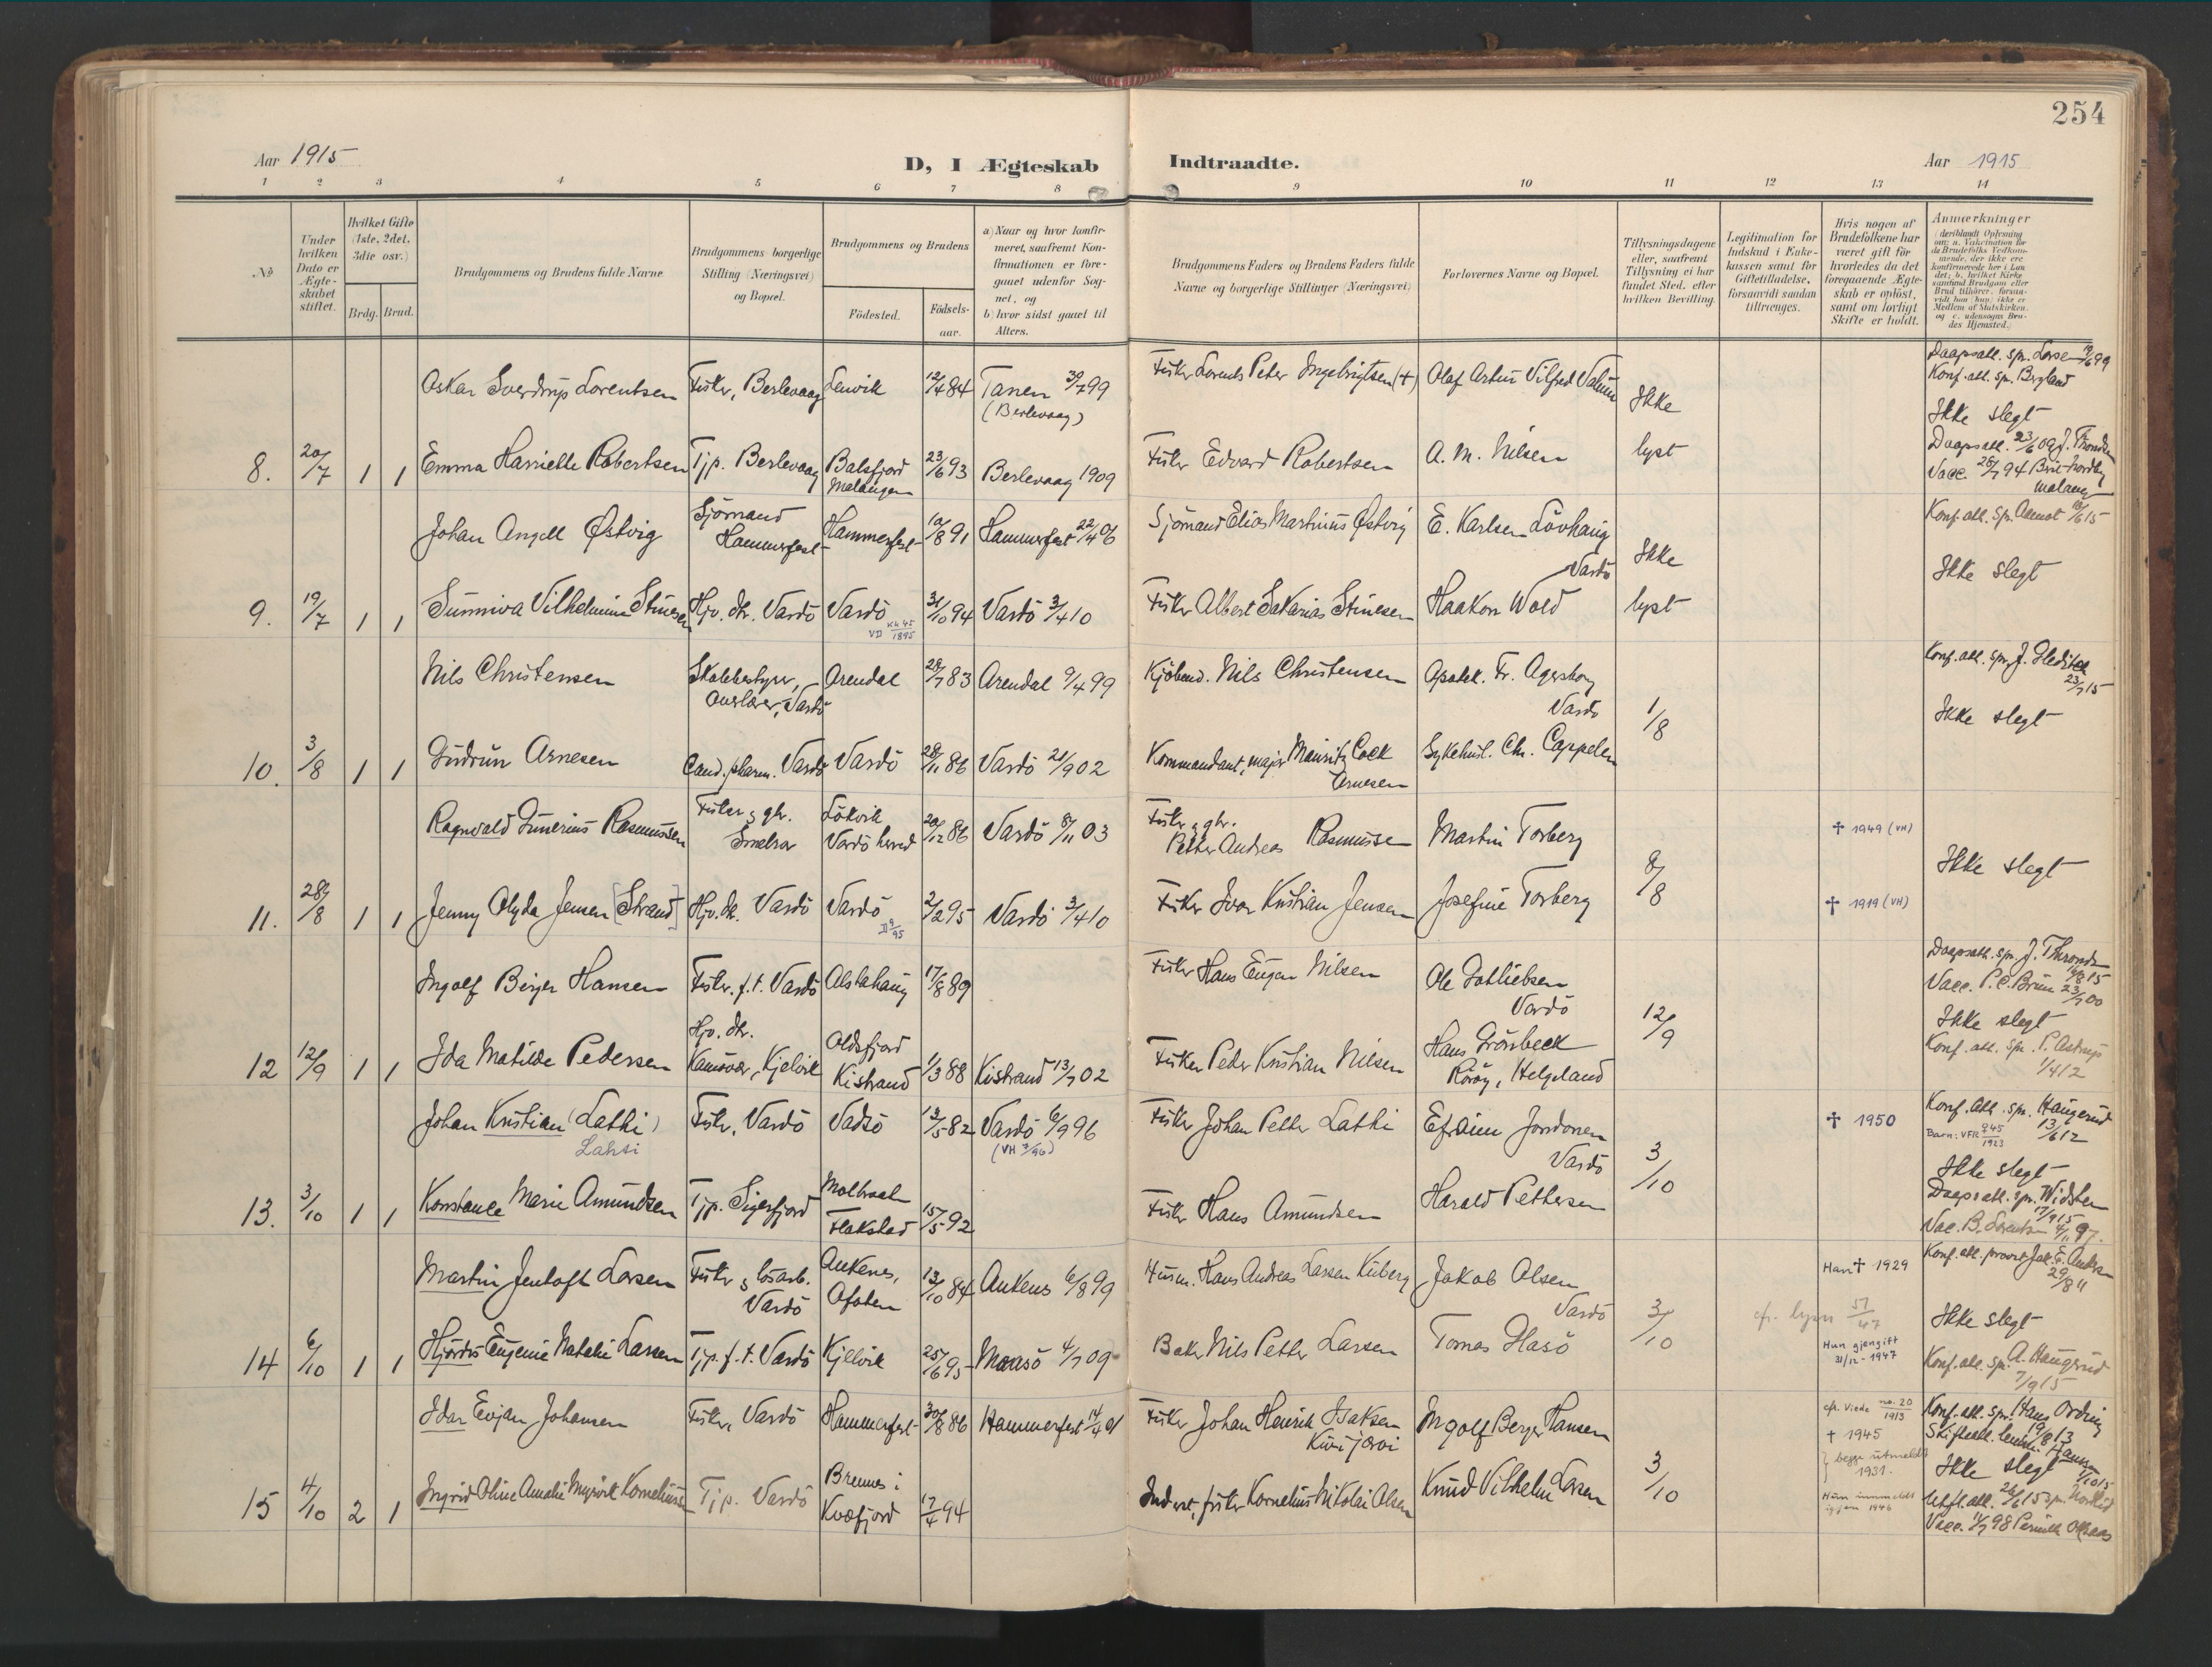 254
Aar 1915
D, I Ægteskab Indtraadte.
Aar 1915
1 2 3 4 5 6 7 8 9 10 11 12 13 14
No
Under hvilken Dato er Ægteskabet stiftet.
Hvilket Gifte (1ste, 2det, 3die osv.)
Brdg. Brud.
Brudgommens og Brudens fulde Navne
Brudgommens borgerlige Stilling (Næringsvei) og Bopæl.
Brudgommens og Brudens
Födested. Födsels-aar.
a) Naar og hvor konfirmeret, saafremt Konfirmationen er foregaaet udenfor Sognet, og
b) hvor sidst gaaet til Alters.
Brudgommens Faders og Brudens Faders fulde Navne og borgerlige Stillinger (Næringsvei)
Forlovernes Navne og Bopæl.
Tillysningsdagene eller, saafremt Tillysning ei har fundet Sted, efter hvilken Bevilling.
Legitimation for Indskud i Enkekassen samt for Giftetilladelse, forsaavidt saadan tiltrænges.
Hvis nogen af Brudefolkene har været gift för hvorledes da det foregaaende Ægteskab er oplöst, samt om lovligt Skifte er holdt.
Anmerkninger (deriblandt Oplysning om: a. Vakcination for de Brudefolks Vedkommende, der ikke ere konfirmerede her i Landet; b. hvilket Kirkesamfund Brudgom eller Brud tilhörer, forsaavidt han (hun) ikke er Medlem af Statskirken, og c. udensogns Brudes Hjemsted.)
Oskar Sverdrup Lorentsen Fisker, Berlevaag Lenvik 12/4 84 Tanen 30/7 99 (Berlevaag) Fisker Lorents Peter Ingebrigtsen (+) Olaf Artur Vilfred Ikke Daapsatt. spr. 99
Konf. att. spr. Bergland
Ikke slegt
8. 20/7 1 1 Emma Harriette Robertsen Tjp. Berlevaag Balsfjord Malangen 23/6 93 Berlevaag 1909 Fisker Edvard Robertsen A. M. Nilsen lyst Daapsatt. 23/6 09 J.
Vacc. 28/7 94
Malangen
Johan Angell Østvig Sjömand Hammerfest Hammerfest 10/8 91 Hammerfest 22/4 06 Sjömand Elias Martinus Østvig E. Karlsen Lövhaug Vardö Ikke Konf. att. spr. 18/6 15
Ikke slegt
9. 19/7 1 1 Sunniva Vilhelmine Stuesen Hjv. dtr. Vardö Vardö 31/10 94 Vardö 3/4 10 Fisker Albert Sakarias Stuesen Haakon Wold lyst
VD Kk 45/1895
Nils Christensen Skolebestyrer, Vardö Arendal 28/7 83 Arendal 9/4 99 Kjöbmd. Nils Christensen Apotek. Fr. Agersborg Vardö 1/8 Konf. att. spr. J. Gleditsch 23/7 15
Ikke slegt
10. 3/8 1 1 Gudrun Arnesen Cand. pharm. Vardö Vardö 28/11 86 Vardö 21/9 02 Kommandant, major Mauritz Cock Arnesen Sykehusl. Chr. Cappelen
Ragnvald Rasmussen Fisker, gbr. Smelror Lökvik Vardö herred 20/12 86 Vardö 8/11 03 Fisker, gbr. Petter Andreas Rasmussen Martin Torberg 8/8 † 1949 (VH)
Ikke slegt
11. 28/8 1 1 Jenny Alyda Jensen [Strand] Hjv. dtr. Vardö Vardö D 9/95 2/2 95 Vardö 3/4 10 Fisker Ivar Kristian Jensen Josefine Torberg † 1919 (VH)
Ingolf Birger Hansen Fisker, f.t. Vardö Alstahaug 17/8 89 Fisker Hans Eugen Nilsen Ole Gotliebsen Vardö 12/9 Daapsatt. spr. J.
Vacc. P. C. Brun 23/7 00
Ikke slegt
12 12/9 1 1 Ida Matilde Pedersen Hjv. dtr. Kamövær, Kjelvik Oldsfjord Kistrand 1/3 88 Kistrand 13/7 02 Fisker Peder Kristian Nilsen Hans Grönbeck Röröy, Helgeland Konf. att. spr. P. Astrup 1/4 12
Johan Kristian (Lathi) Fisker, Vardö Vadsö 13/5 82 Vardö 6/9 96 Fisker Johan Petter Lathi Efraim Jordonen Vardö 3/10 † 1950 Konf. att. spr. Haugerud 13/6 12
Lahti
(VH 7/96)
Barn: VFR 945/1923
Ikke slegt
13. 3/10 1 1 Konstance Marie Amundsen Tjp. Sigerfjord Flakstad 15/5 92 Fisker Hans Amundsen Harald Pettersen Daapsatt. spr. Widsten 17/9 15
Vac. B. Lorentsen 4/11 97.
Martin Jentoft Larsen Fisker, lösarb. Vardö Ankenes, Ofoten 13/10 84 Ankenes 6/8 99 Husm. Hans Andreas Larsen Kuberg Jakob Olsen Vardö 3/10 Han † 1929 Konf. att. provst Jak. 29/8 11
cfr. lysn 51/47
Ikke slegt
14 6/10 1 1 Hjördis Eugenie Natalie Larsen Tjp. f.t. Vardö Kjelvik 25/6 95 Maasö 4/7 09 Baker Nils Petter Larsen Tomas Hasö Hun gjengift 31/12 - 1947 Konf. att. spr. A. Haugerud 7/9 15
Idar Evjan Johansen Fisker, Vardö Hammerfest 30/8 86 Hammerfest 14/4 01 Fisker Johan Henrik Isaksen Kivijærvi Ingolf Berger Hansen 3/10 cfr. viede no. 20/1913 Konf. att. spr. Hans Ording 19/8 13
† 1945
Skifteatt.
} begge utmeldt 1931.
Ikke slegt
15 4/10 2 1 Ingrid Oline Amalie Myrvik Kornelius Tjp. Vardö Bremnes i Kvæfjord 17/4 94 Inderst, fisker Kornelius Nikolai Olsen Knud Vilhelm Larsen Hun innmeldt igjen 1946
Utfl. att. 26/6 15 spr.
Vacc. 11/7 98